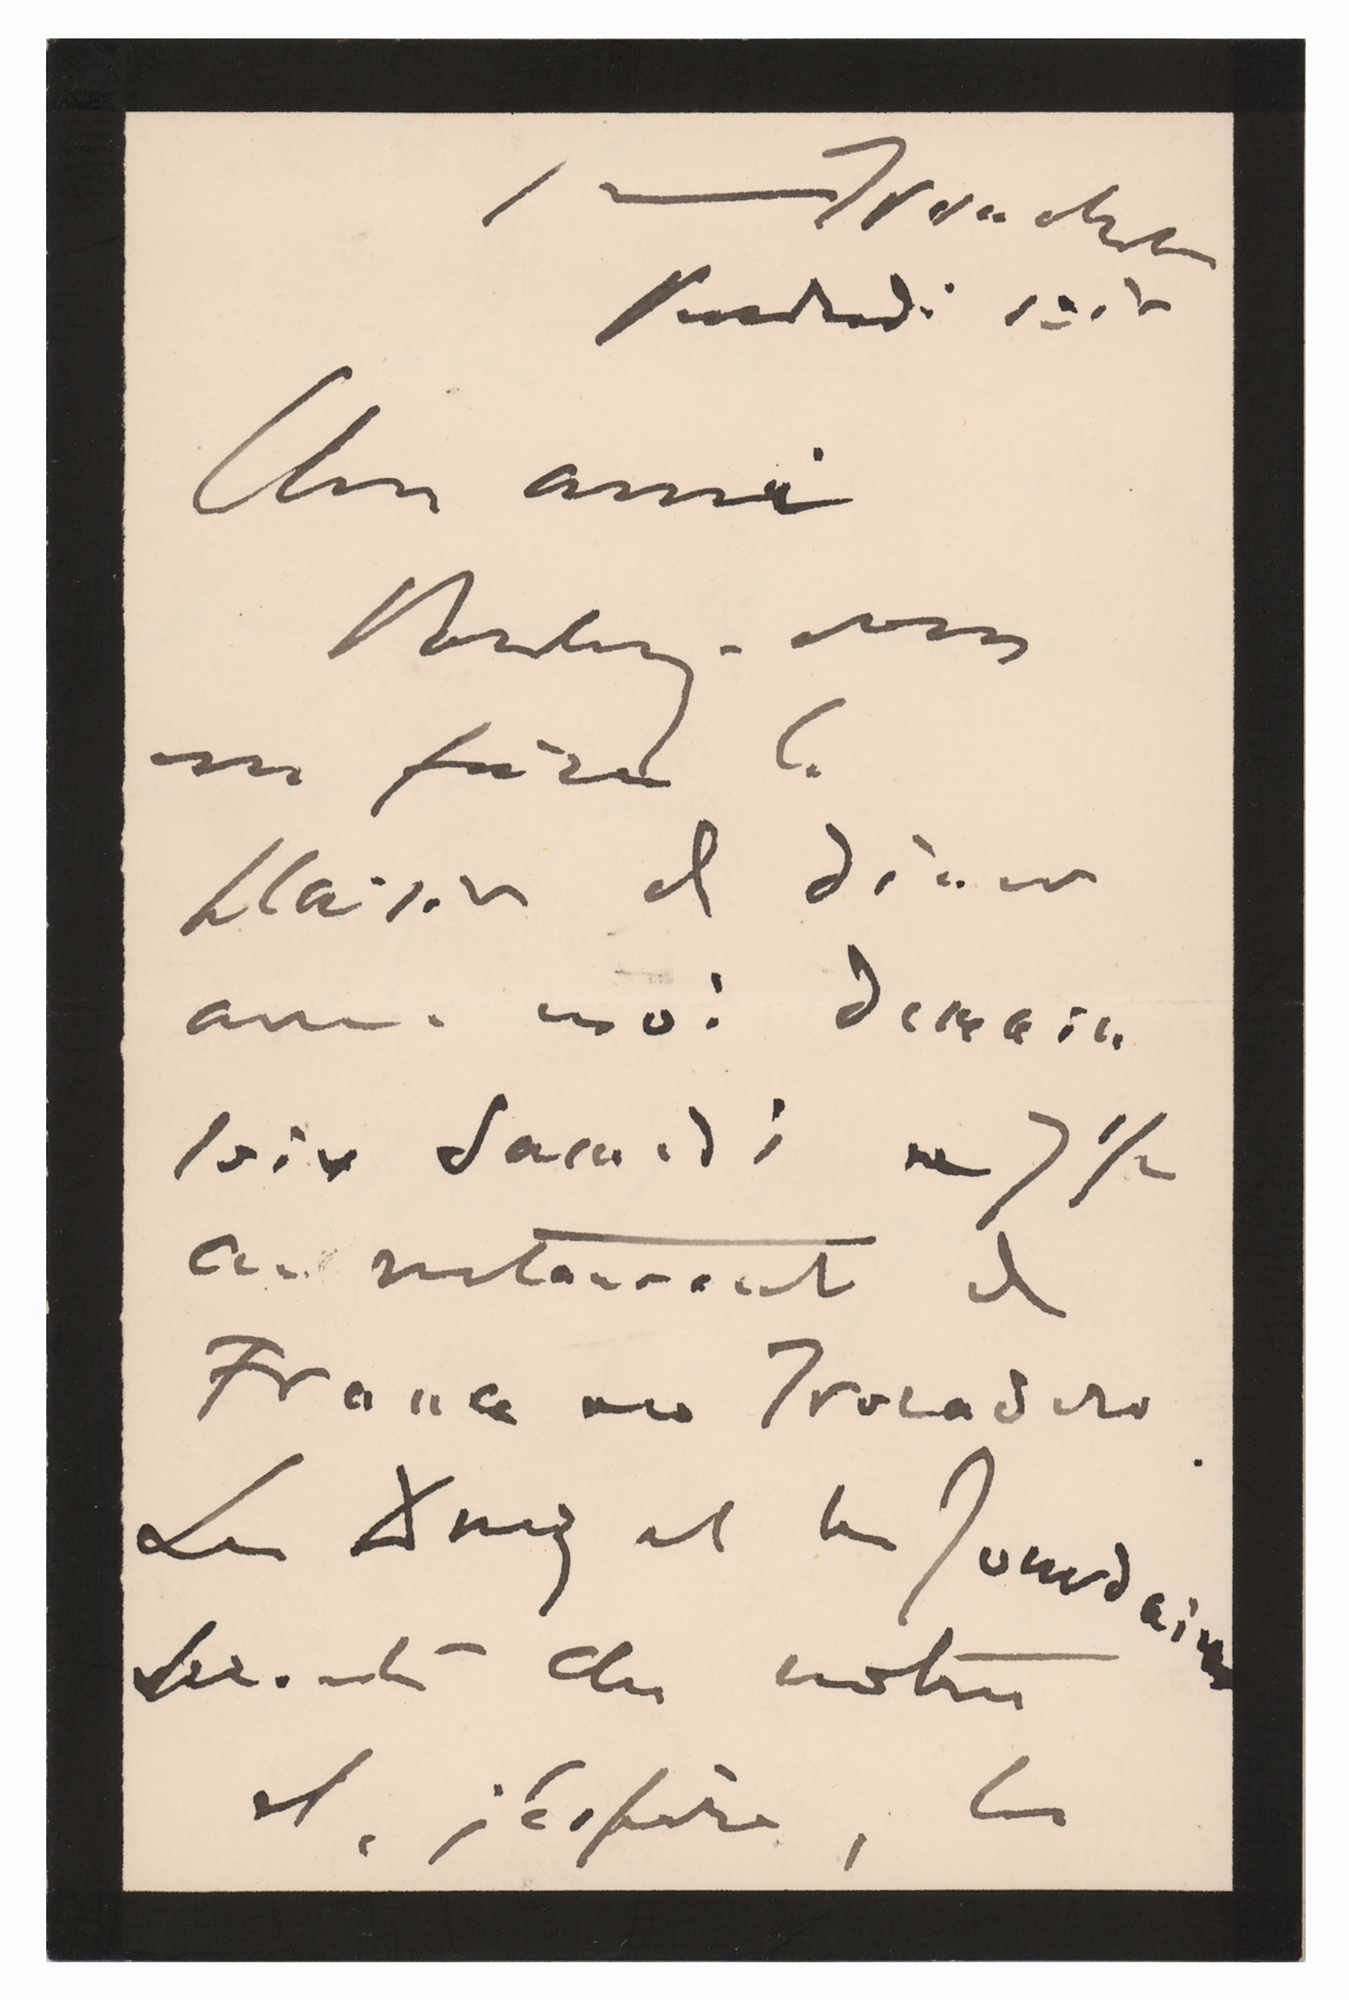 1 rue Tronchet
Vendredi soir
Cher ami
Voulez-vous
me faire le
plaisir de dîner
avec moi demain
soir Samedi à 7 1/2
au restaurant de
France au Trocadero.
Les et les Jourdain
seront des notres
et, j'espère, les